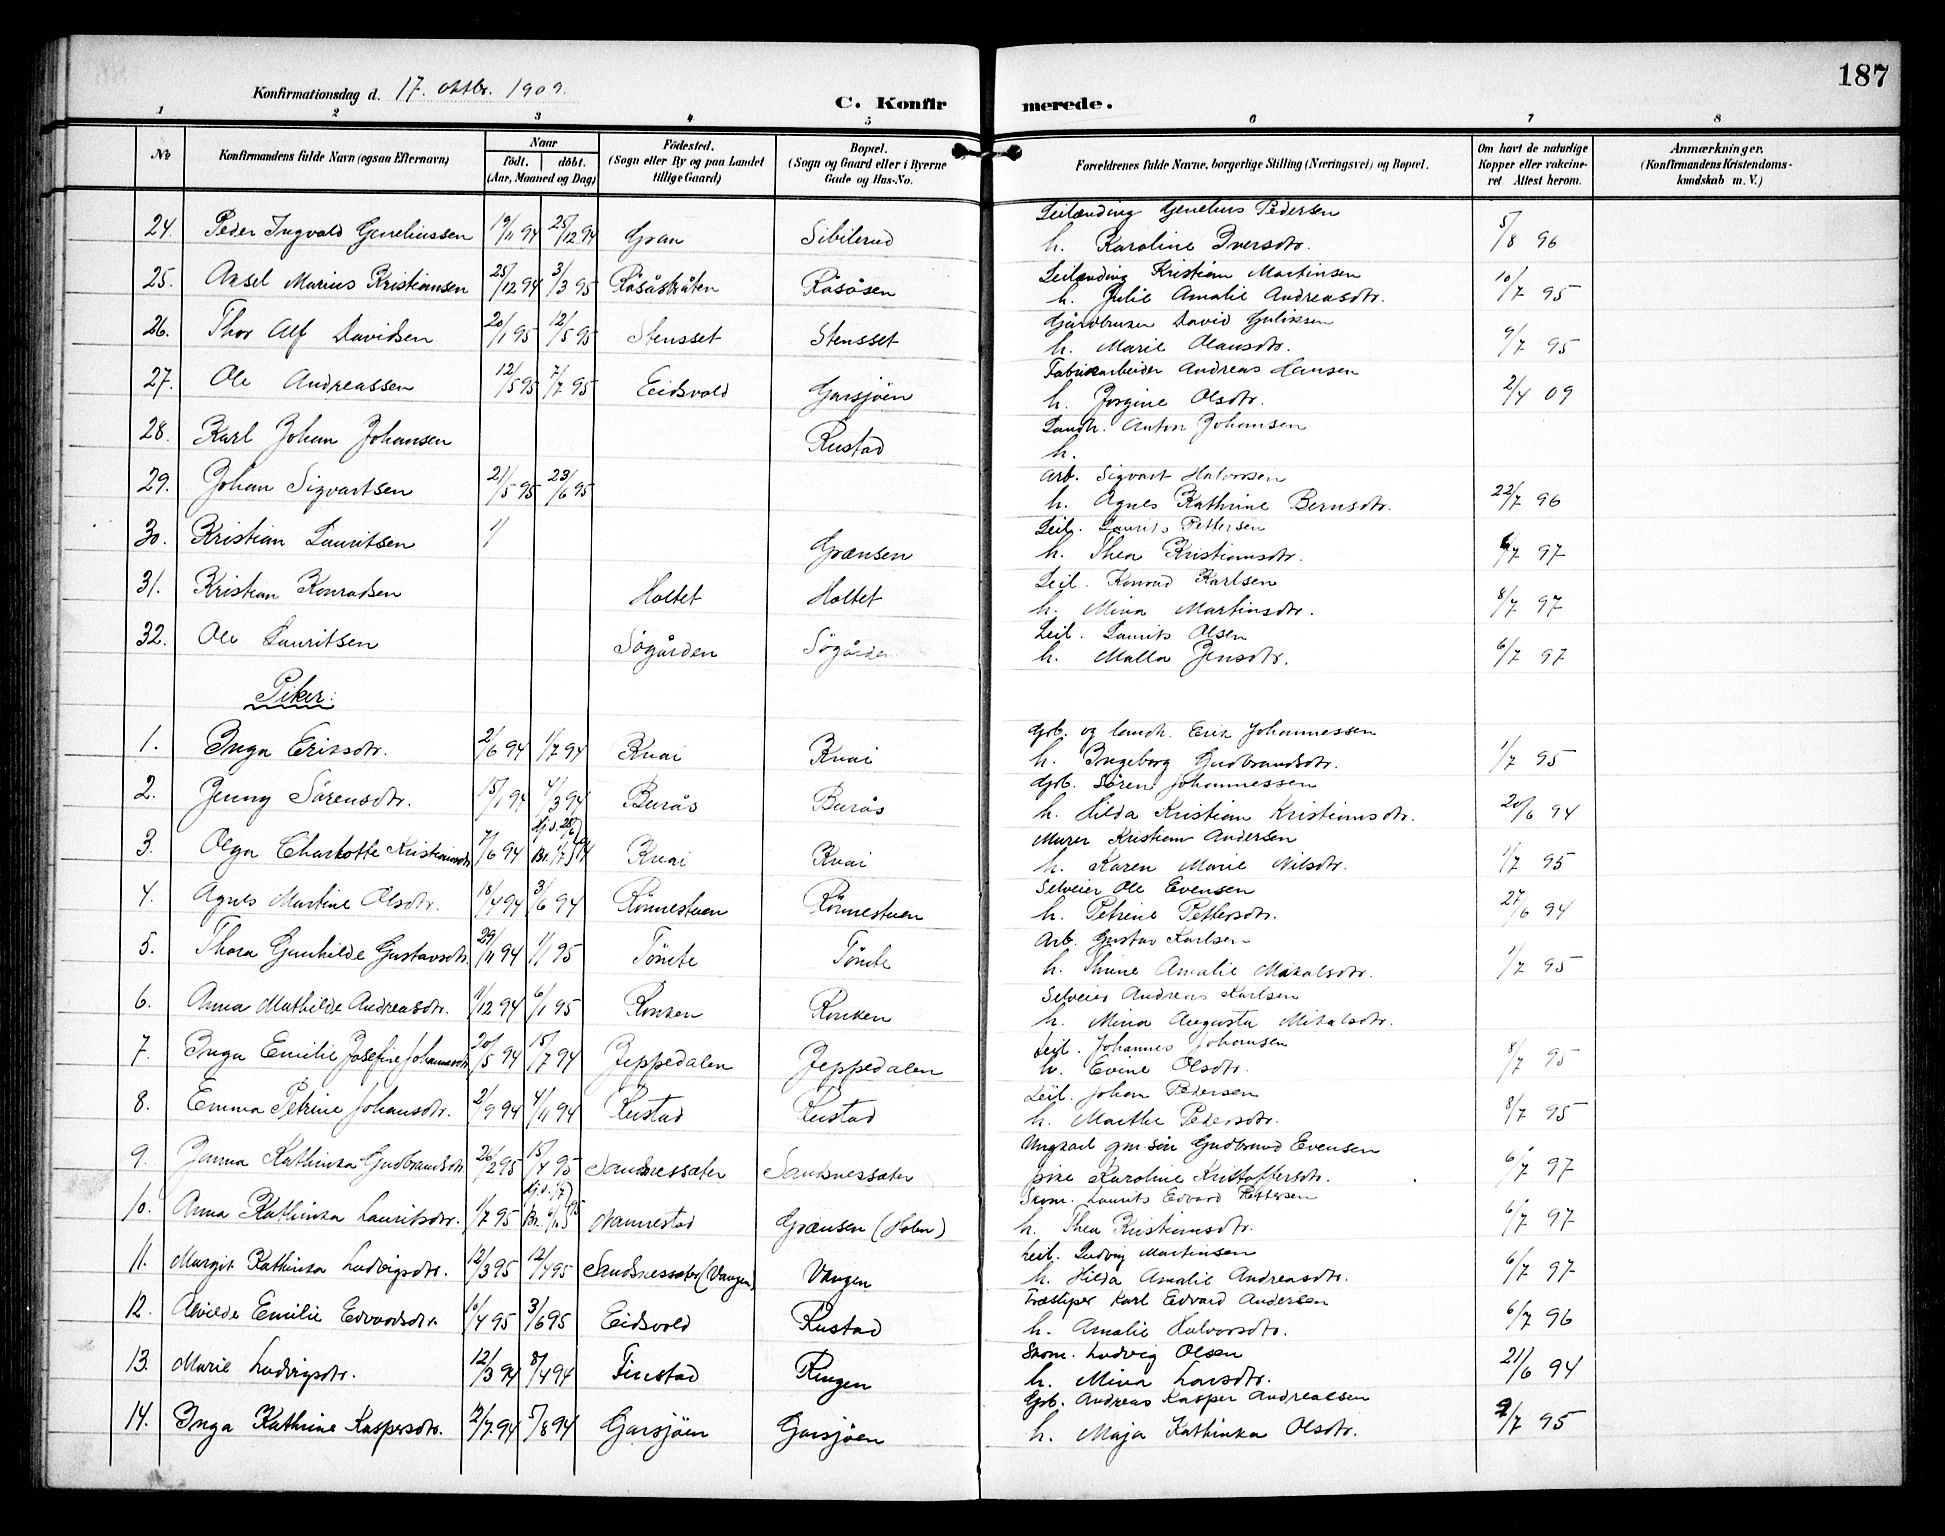 187
Konfirmationsdag d. 17. oktbr. 1909.
C. Konfirmerede.
1 2 3 4 5 6 7 8
No. Konfirmandens fulde Navn (ogsaa Efternavn) Naar født. døbt. (Aar, Maaned og Dag) Födested. (Sogn eller By og paa Landet tillige Gaard) Bopæl. (Sogn og Gaard eller i Byerne Gade og Hus-No. Forældrenes fulde Navne, borgerlige Stilling (Næringsvei) og Bopæl. Om havt de naturlige Kopper eller vakcineret Attest herom. Anmærkninger. (Konfirmandens Kristendomskundskab m. V.)
24. Peder Ingvald Geneliussen 19/11 94 25/12 94 Gran Sibilerud Leilænding Genelius Pedersen 5/8 96
h. Karoline Iversdtr.
25. Aksel Marius Kristiansen 25/12 94 3/3 95 Råsåsbråten Råsåsen Leilænding Kristian Martinsen 10/7 95
h. Julie Amalie Andreasdtr.
26. Thor Alf Davidsen 20/1 95 12/5 95 Stensset Stensset Gårdbruker David Guliksen 9/7 95
h. Marie Olausdtr.
27. Ole Andreassen 12/5 95 7/7 95 Eidsvold Garsjöen Fabrikarbeider Andreas Hansen 2/4 09
h. Jorgine Olsdtr.
28. Karl Johan Johansen Rustad Landh. Anton Johansen
h.
29. Johan Sigvartsen 21/5 95 23/6 95 Arb. Sigvart Halvorsen 22/7 96
h. Agnes Kathrine Bernsdtr.
30. Kristian Lauritsen 1/ Grænsen Leil. Laurits Pettersen 6/7 97
h. Thea Kristiansdtr.
31. Kristian Konradsen Holtet Holtet Leil. Konrad Karlsen 8/7 97
h. Mina Martinsdtr.
32. Ole Lauritsen Sögården Sögården Leil. Laurits Olsen 6/7 97
h. Malla Jensdtr.
Piker:
1. Inga Eriksdtr. 2/6 94 1/7 94 Knai Knai Gbr. og landh. Erik Johannessen 1/7 95
h. Ingeborg Gudbrandsdtr.
2. Jenny Sörensdtr. 15/1 94 4/3 94 Burås Burås Gbr. Sören Johannessen 20/6 94
h. Hilda Kristian Kristiansdtr.
3. Olga Charlotte Kristiansdtr. 7/6 94 Hj.d. 28/6 Br. 1/7 94 Knai Knai Murer Kristian Andersen 1/7 95
h. Karen Marie Nilsdtr.
4. Agnes Martine Olsdtr. 18/4 94 3/6 94 Rönnestuen Rönnestuen Selveier Ole Evensen 27/6 94
h. Petrine Pettersdtr.
5. Thora Gunhilde Gustavsdtr. 29/11 94 1/1 95 Tömte Tömte Arb. Gustav Karlsen 1/7 95
h. Thrine Amalie Mikalsdtr.
6. Anna Mathilde Andreasdtr. 11/12 94 6/1 95 Ronken Ronken Selveier Andreas Karlsen
h. Mina Augusta Mikalsdtr.
7. Inga Emilie Josefine Johannesdtr. 20/5 94 15/7 94 Jeppedalen Jeppedalen Leil. Johannes Johansen 8/7 95
h. Evine Olsdtr.
8. Emma Petrine Johansdtr. 2/9 94 4/11 94 Rustad Rustad Leil. Johan Pedersen 8/7 95
h. Marthe Pedersdtr.
9. Jenna Kathinka Gudbrandsdtr. 26/2 95 15/4 95 Sandsnessæter Sandsnessæter Ungkarl gm.sön Gudbrand Evensen 6/7 97
pike Karoline Kristoffersdtr.
10. Anna Kathinka Lauritsdtr. 1/7 95 Hj.d. 1/7 Br. 6/10 95 Nannestad Grænsen (Holm) Skom. Laurits Edvard Pettersen 6/7 97
h. Thea Kristiansdtr.
11. Margit Kathinka Ludvigsdtr. 12/3 95 12/4 95 Sandsnessæter (Vangen) Vangen Leil. Ludvig Martinsen 6/7 97
h. Hilda Amalie Andreasdtr.
12. Alvilde Emilie Edvardsdtr. 10/4 95 3/6 95 Eidsvold Rustad Træsliper Karl Edvard Andersen 6/7 96
h. Amalie Halvorsdtr.
13. Marie Ludvigsdtr. 12/3 94 8/4 94 Finstad Ringen Skom. Ludvig Olsen 21/6 94
h. Mina Larsdtr.
14. Inga Kathrine Kaspersdtr. 12/7 94 5/8 94 Garsjöen Garsjöen Gbr. Andreas Kasper Andreassen 2/7 95
h. Maja Kathinka Olsdtr.